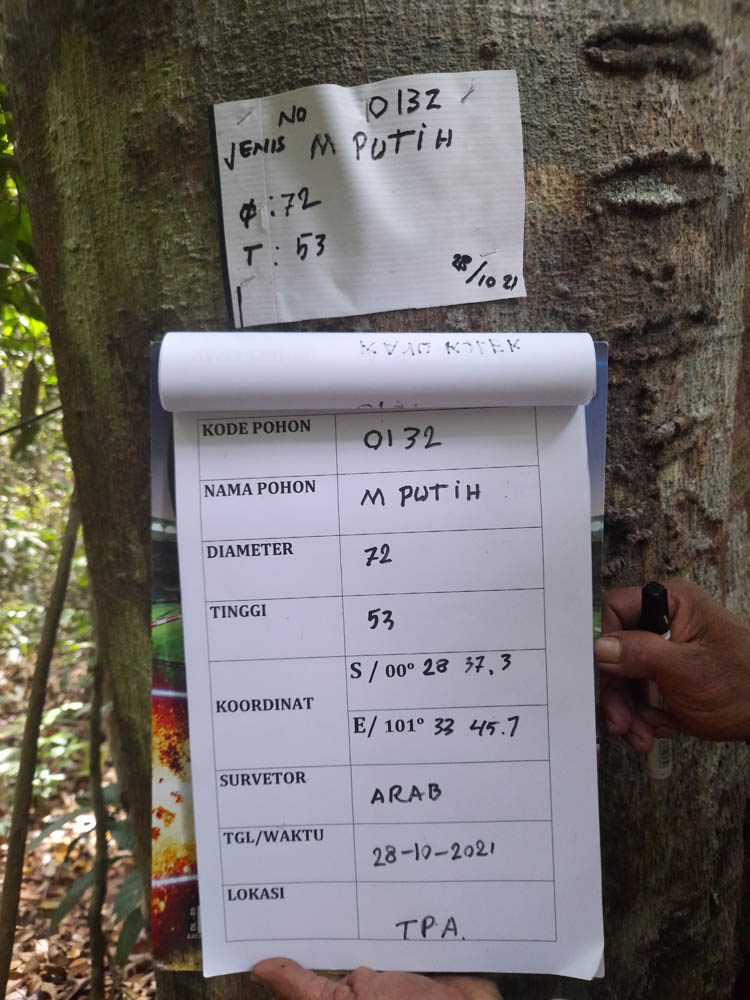 NO 10132
JENIS M PUTIH
φ : 72
T : 53
28/10 21
KAYU KOLEK
KODE POHON 0132
NAMA POHON M PUTIH
DIAMETER 72
TINGGI 53
KOORDINAT
S / 00° 28 37,3
E/ 101° 33 45.7
SURVETOR ARAB
TGL/WAKTU 28-10-2021
LOKASI T.P.A.